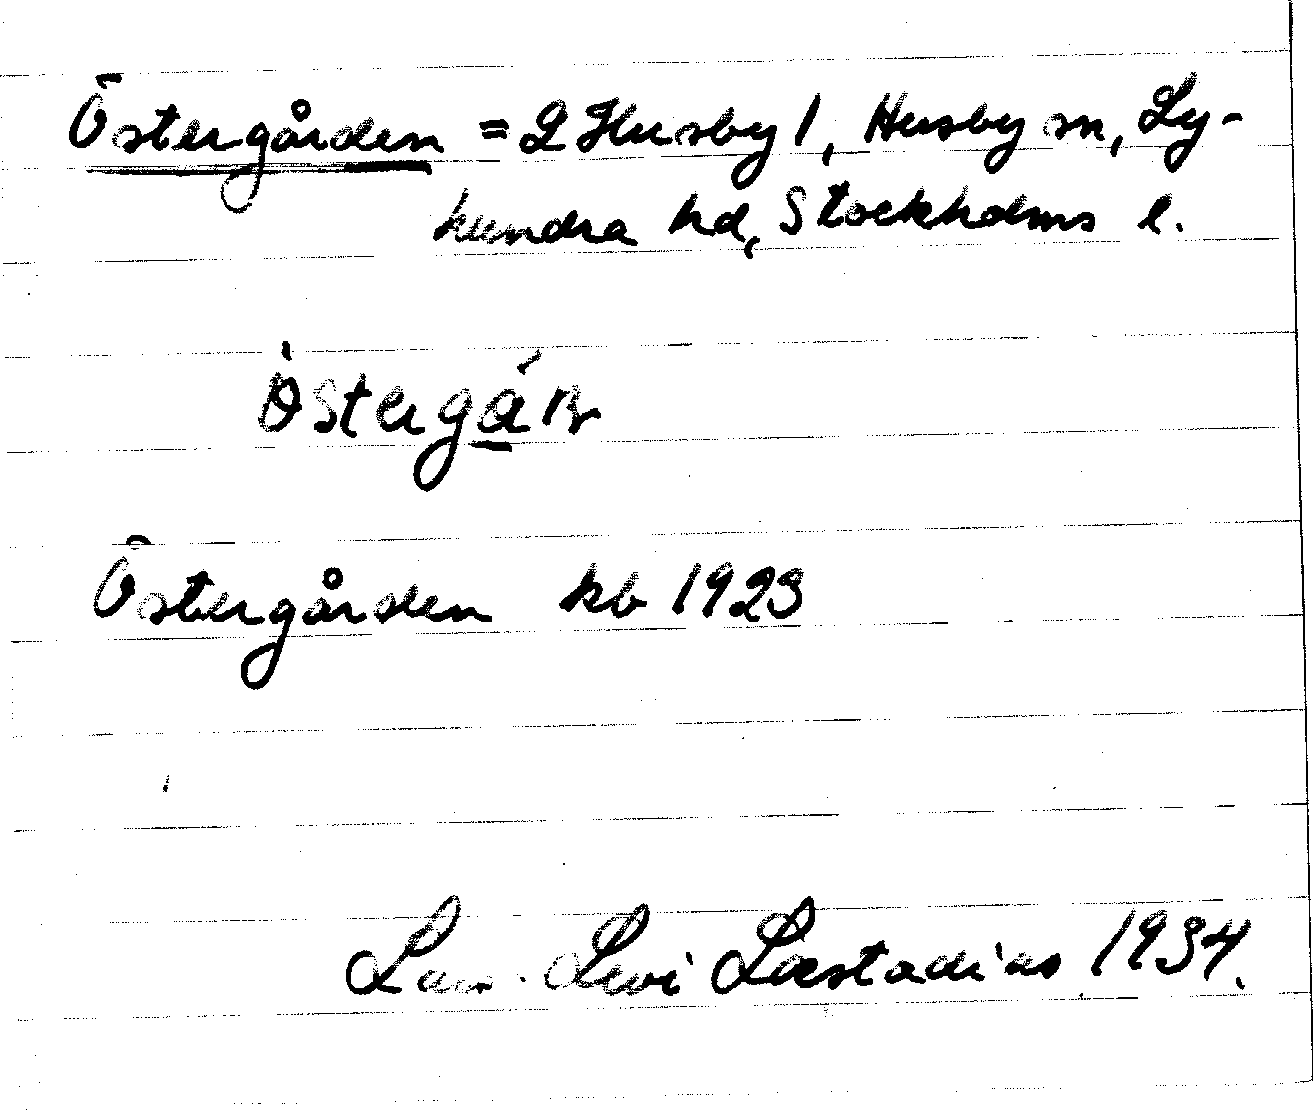 Östergården = 2 Husby 1, Husby sn, Ly-
hundra hd, Stockholms l.
Östergården kb 1923
Lars-Levi Læstadius 1934.